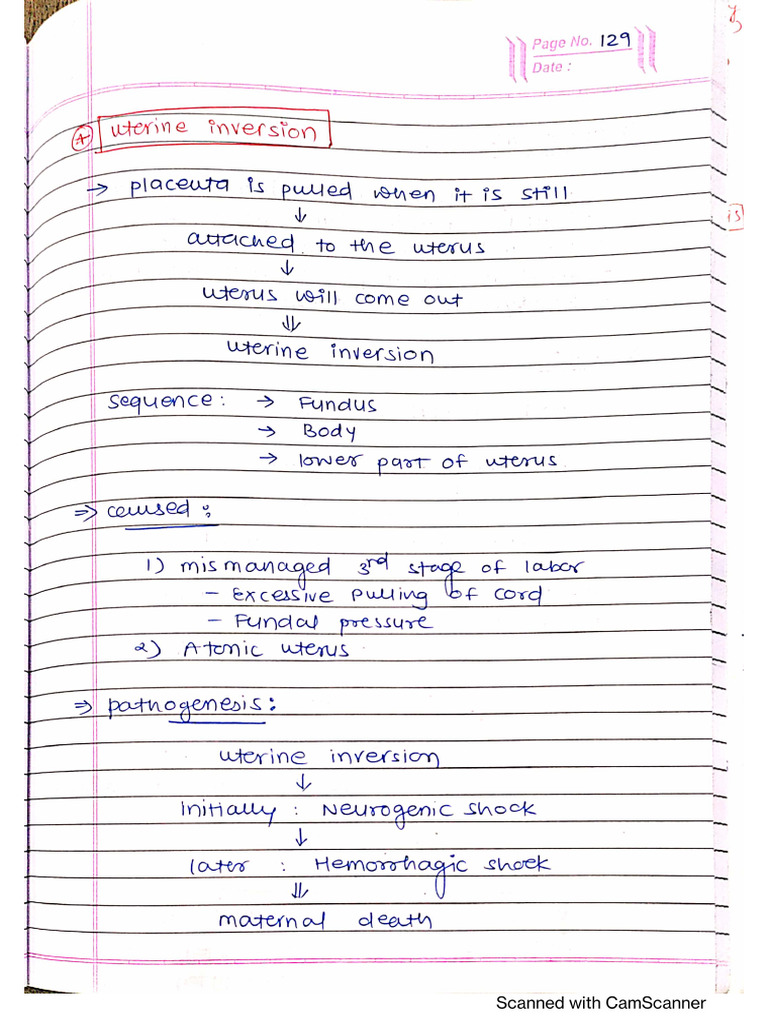 Page No. 129
Date :
+ uterine inversion
→ placenta is pulled when it is still
↓
attached to the uterus
↓
uterus will come out
⇓
uterine inversion
is
sequence: → Fundus
→ Body
→ lower part of uterus
⇒ caused :
1) mismanaged 3rd stage of labor
- Excessive pulling of cord
- Fundal pressure
2) Atonic uterus
⇒ pathogenesis:
uterine inversion
↓
initially : Neurogenic shock
↓
later : Hemorrhagic shock
⇓
maternal death
Scanned with CamScanner